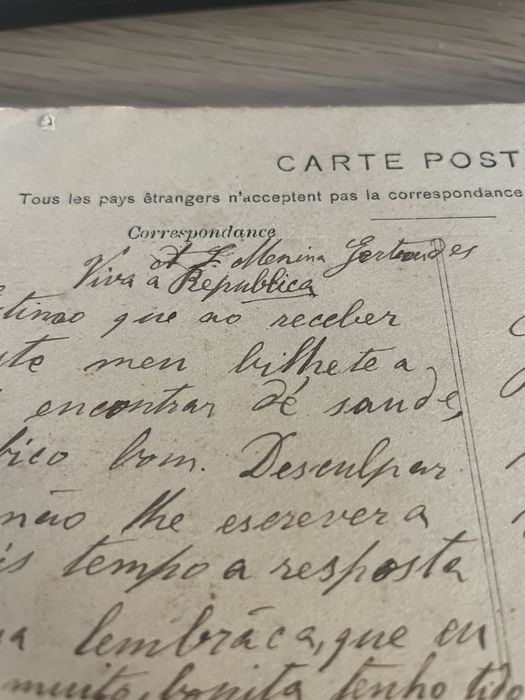 CARTE POST
Tous les pays êtrangers n'acceptent pas la correspondance
Correspondance
Menina Gertrudes
Viva a Republica
que ao receber
meu bilhete a
encontrar de saude,
bom. Desculpar
não lhe escrever a
tempo a resposta
lembrãca, que eu
muito bonita tenho